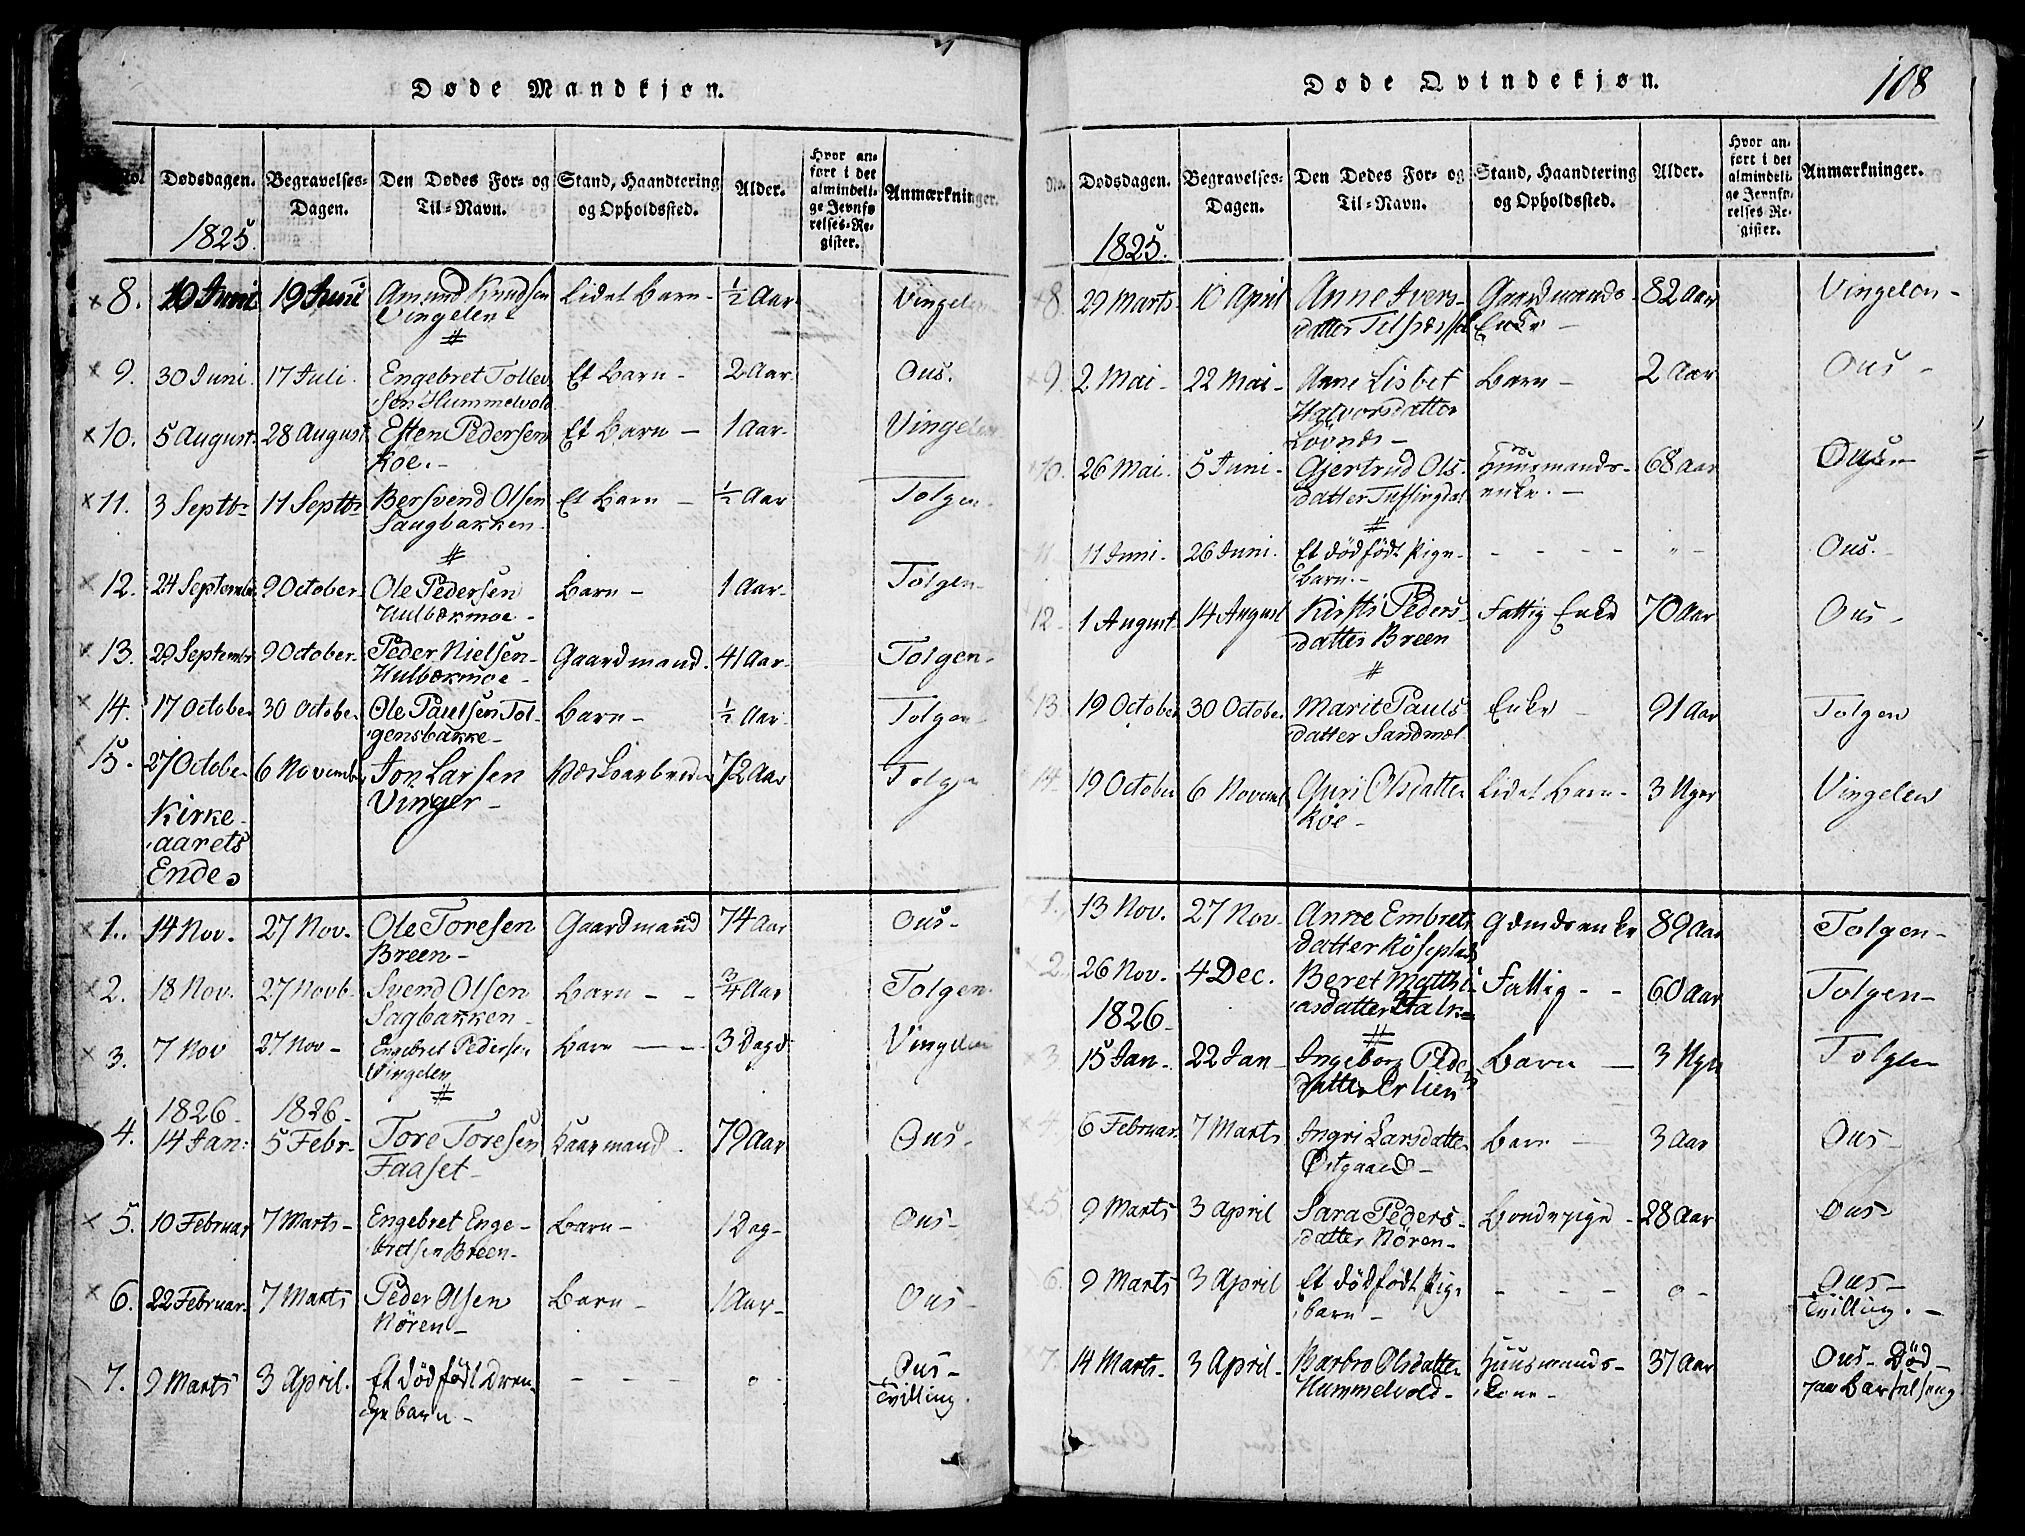 Døde Mandkjøn.
No. Dødsdagen. Begravelses- Dagen. Den Dødes For- og Til-Navn. Stand, Haandtering og Opholdssted. Alder. Hvor anført i det almindelige Jevnførelses-Register. Anmærkninger.
1825.
8. 19 Juni 19 Juni Amund Knudsen Lidet Barn - ½ Aar Vingelen
Vingelen
9. 30 Juni. 17 Juli. Engebret Tollev Et Barn - 2 Aar Ous.
sen Hummelvold
10. 5 August. 28 August Esten Pedersen Et Barn - 1 Aar Vingelen
Koe.-
11. 3 Septbr 11 Septbr Bersvend Olsen Et Barn - ½ Aar Tolgen.
Saugbakken.
12. 24 September 9 October. Ole Pedersen Barn - 1 Aar Tolgen-
Hulbækmoe -
13. 29 Septembr 9 October. Peder Nielsen Gaardmand. 41 Aar Tolgen-
Hulbækmoe -
14. 17 October 30 October Ole Paulsen Tol- Barn - ½ Aar Tolgen-
gensbakke -
15. 27 October 6 November Jon Larsen 72 Aar Tolgen
Vinger -
Kirke-
aarets
Ende
1. 14 Nov. 27 Nov. Ole Toresen Gaardmand 74 Aar Ous -
Breen -
2. 18 Nov. 27 Novb. Svend Olsen Barn - - ¾ Aar Tolgen
Sagbakken -
3. 7 Nov 27 Nov - Engebret Pedersen Barn - - 3 Dage Vingelen
Vingelen
1826 - 1826 -
4. 14 Jan: 5 Febr. Tore Toresen Gaarmand 79 Aar Ous -
Faaset -
5. 10 Februar 7 Marts - Engebret Enge- Barn - 1 Dag - Ous -
bretsen Breen -
6. 22 Februar. 7 Marts Peder Olsen Barn - 1 Aar - Ous -
Nören -
7. 9 Marts 3 April. Et dödfödt Dren- - - - o - Ous -
gebarn - Tvilling.
Døde Qvindekjøn.
108
No. Dødsdagen. Begravelses- Dagen. Den Dødes For- og Til-Navn. Stand, Haandtering og Opholdssted. Alder. Hvor anført i det almindelige Jevnførelses-Register. Anmærkninger.
1825.
8. 29 Marts 10 April Anne Ivers- Gaardmands- 82 Aar Vingelen -
datter Enke -
9. 2 Mai - 22 Mai - Anne Lisbet Barn - 2 Aar Ous -
Halvorsdatter
10. 26 Mai. 5 Juni - Gjertrud Ols- Huusmands- 68 Aar Ous -
datter Tuflingdal enke. -
11 11 Juni. 26 Juni. Et dödfödt Pige- - - - - " - Ous.-
barn. -
12. 1 August 14 August Kirsti Peders- Fattig Enke 70 Aar Ous -
datter Breen
13 19 October 30 October Marit Pauls Enke - 91 Aar Tolgen
datter Sandmæl
14. 19 October 6 Novemb Guri Olsdatter Lidet Barn - 3 Uger Vingelen
Koe -
1. 13 Nov. 27 Nov. Anne Embrets Gdmdsenke 89 Aar Tolgen -
datter Röseplads
2. 26 Nov. 4 Dec. Beret Matthi Fattig - - 60 Aar Tolgen -
asdatter
1826.
3. 15 Jan - 22 Jan - Ingeborg Peders Barn - 3 Uger Tolgen
datter Erlien
4. 6 Februar. 7 Marts Ingri Larsdatter Barn - 3 Aar Ous -
Östgaard -
5. 9 Marts 3 April Sara Peders- Bondepige - 28 Aar Ous -
datter Nören -
6. 9 Marts 3 April Et dödfödt Pige - - - o - Ous -
barn - Tvilling. -
7. 14 Marts. 3 April. Barbro Olsdatter Huusmands- 37 Aar Ous - Död -
Hummelvold - kone - paa Barselseng